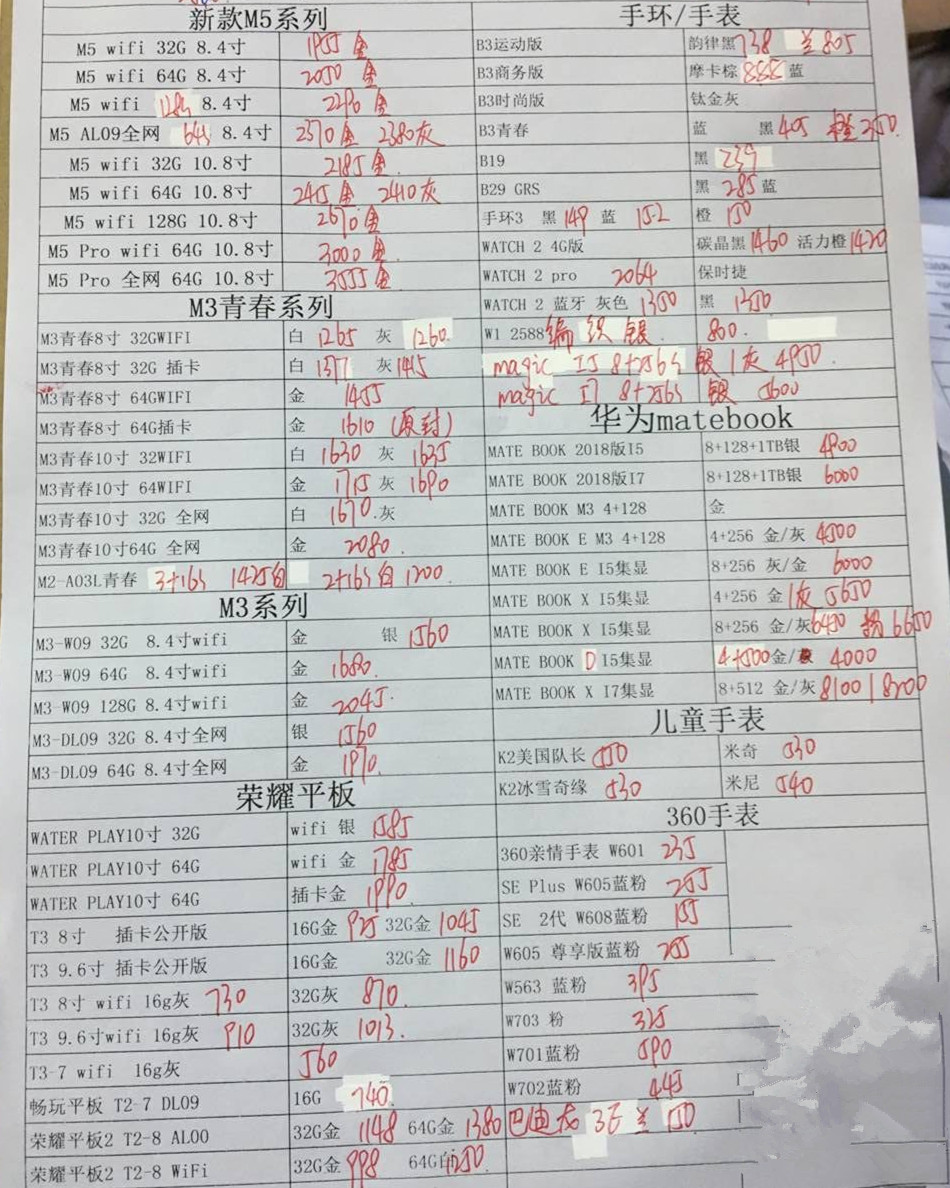 新款M5系列
M5 wifi 32G 8.4寸 1955 金
M5 wifi 64G 8.4寸 2050 金
M5 wifi 128G 8.4寸 2290 金
M5 AL09全网 64G 8.4寸 2370 金 2380灰
M5 wifi 32G 10.8寸 2185 金
M5 wifi 64G 10.8寸 2415 金 2410 灰
M5 wifi 128G 10.8寸 2670 金
M5 Pro wifi 64G 10.8寸 3000 金
M5 Pro 全网 64G 10.8寸 3555 金
M3青春系列
M3青春8寸 32GWIFI 白 1265 灰 1260
M3青春8寸 32G 插卡 白 1371 灰 1415
M3青春8寸 64GWIFI 金 1455
M3青春8寸 64G插卡 金 1610 (原封)
M3青春10寸 32WIFI 白 1630 灰 1635
M3青春10寸 64WIFI 金 1715 灰 1690
M3青春10寸 32G 全网 白 1670.灰
M3青春10寸64G 全网 金 2080.
M2-A03L青春 3+16G 1425白 2+16G 白 1200.
M3系列
M3-W09 32G 8.4寸wifi 金 银 1560
M3-W09 64G 8.4寸wifi 金 1680.
M3-W09 128G 8.4寸wifi 金 2045.
M3-DL09 32G 8.4寸全网 银 1560
M3-DL09 64G 8.4寸全网 金 1970.
荣耀平板
WATER PLAY10寸 32G wifi 银 1585
WATER PLAY10寸 64G wifi 金 1785
WATER PLAY10寸 64G 插卡金 1990.
T3 8寸 插卡公开版 16G金 925 32G金 1045
T3 9.6寸 插卡公开版 16G金 32G金 1160
T3 8寸 wifi 16g灰 730 32G灰 870.
T3 9.6寸wifi 16g灰 910 32G灰 1013.
T3-7 wifi 16g灰 560
畅玩平板 T2-7 DL09 16G 740.
荣耀平板2 T2-8 AL00 32G金 1148 64G金 1380
荣耀平板2 T2-8 WiFi 32G金 998 64G白 1250.
手环/手表
B3运动版 韵律黑 738 兰 805
B3商务版 摩卡棕 888 蓝
B3时尚版 钛金灰
B3青春 蓝 黑 405 橙 250.
B19 黑 239
B29 GRS 黑 285 蓝
手环3 黑 149 蓝 152 橙 150
WATCH 2 4G版 碳晶黑 1460 活力橙 1420
WATCH 2 pro 2064 保时捷
WATCH 2 蓝牙 灰色 1350 黑 1350
W1 2588 编织银. 800.
magic I5 8+256G 银/灰 4950.
magic I7 8+256G 银 5600
华为matebook
MATE BOOK 2018版I5 8+128+1TB银 4900
MATE BOOK 2018版I7 8+128+1TB银 6000
MATE BOOK M3 4+128 金
MATE BOOK E M3 4+128 4+256 金/灰 4500
MATE BOOK E I5集显 8+256 灰/金 6000
MATE BOOK X I5集显 4+256 金/灰 5650
MATE BOOK X I5集显 8+256 金/灰 6450 粉 6650
MATE BOOK D I5集显 4+500金/ 4000
MATE BOOK X I7集显 8+512 金/灰 8100/8200
儿童手表
K2美国队长 550 米奇 530
K2冰雪奇缘 530 米尼 540
360手表
360亲情手表 W601 235
SE Plus W605蓝粉 255
SE 2代 W608蓝粉 155
W605 尊享版蓝粉 255
W563 蓝粉 395
W703 粉 325
W701蓝粉 590
W702蓝粉 445
巴迪龙 3E 兰 150